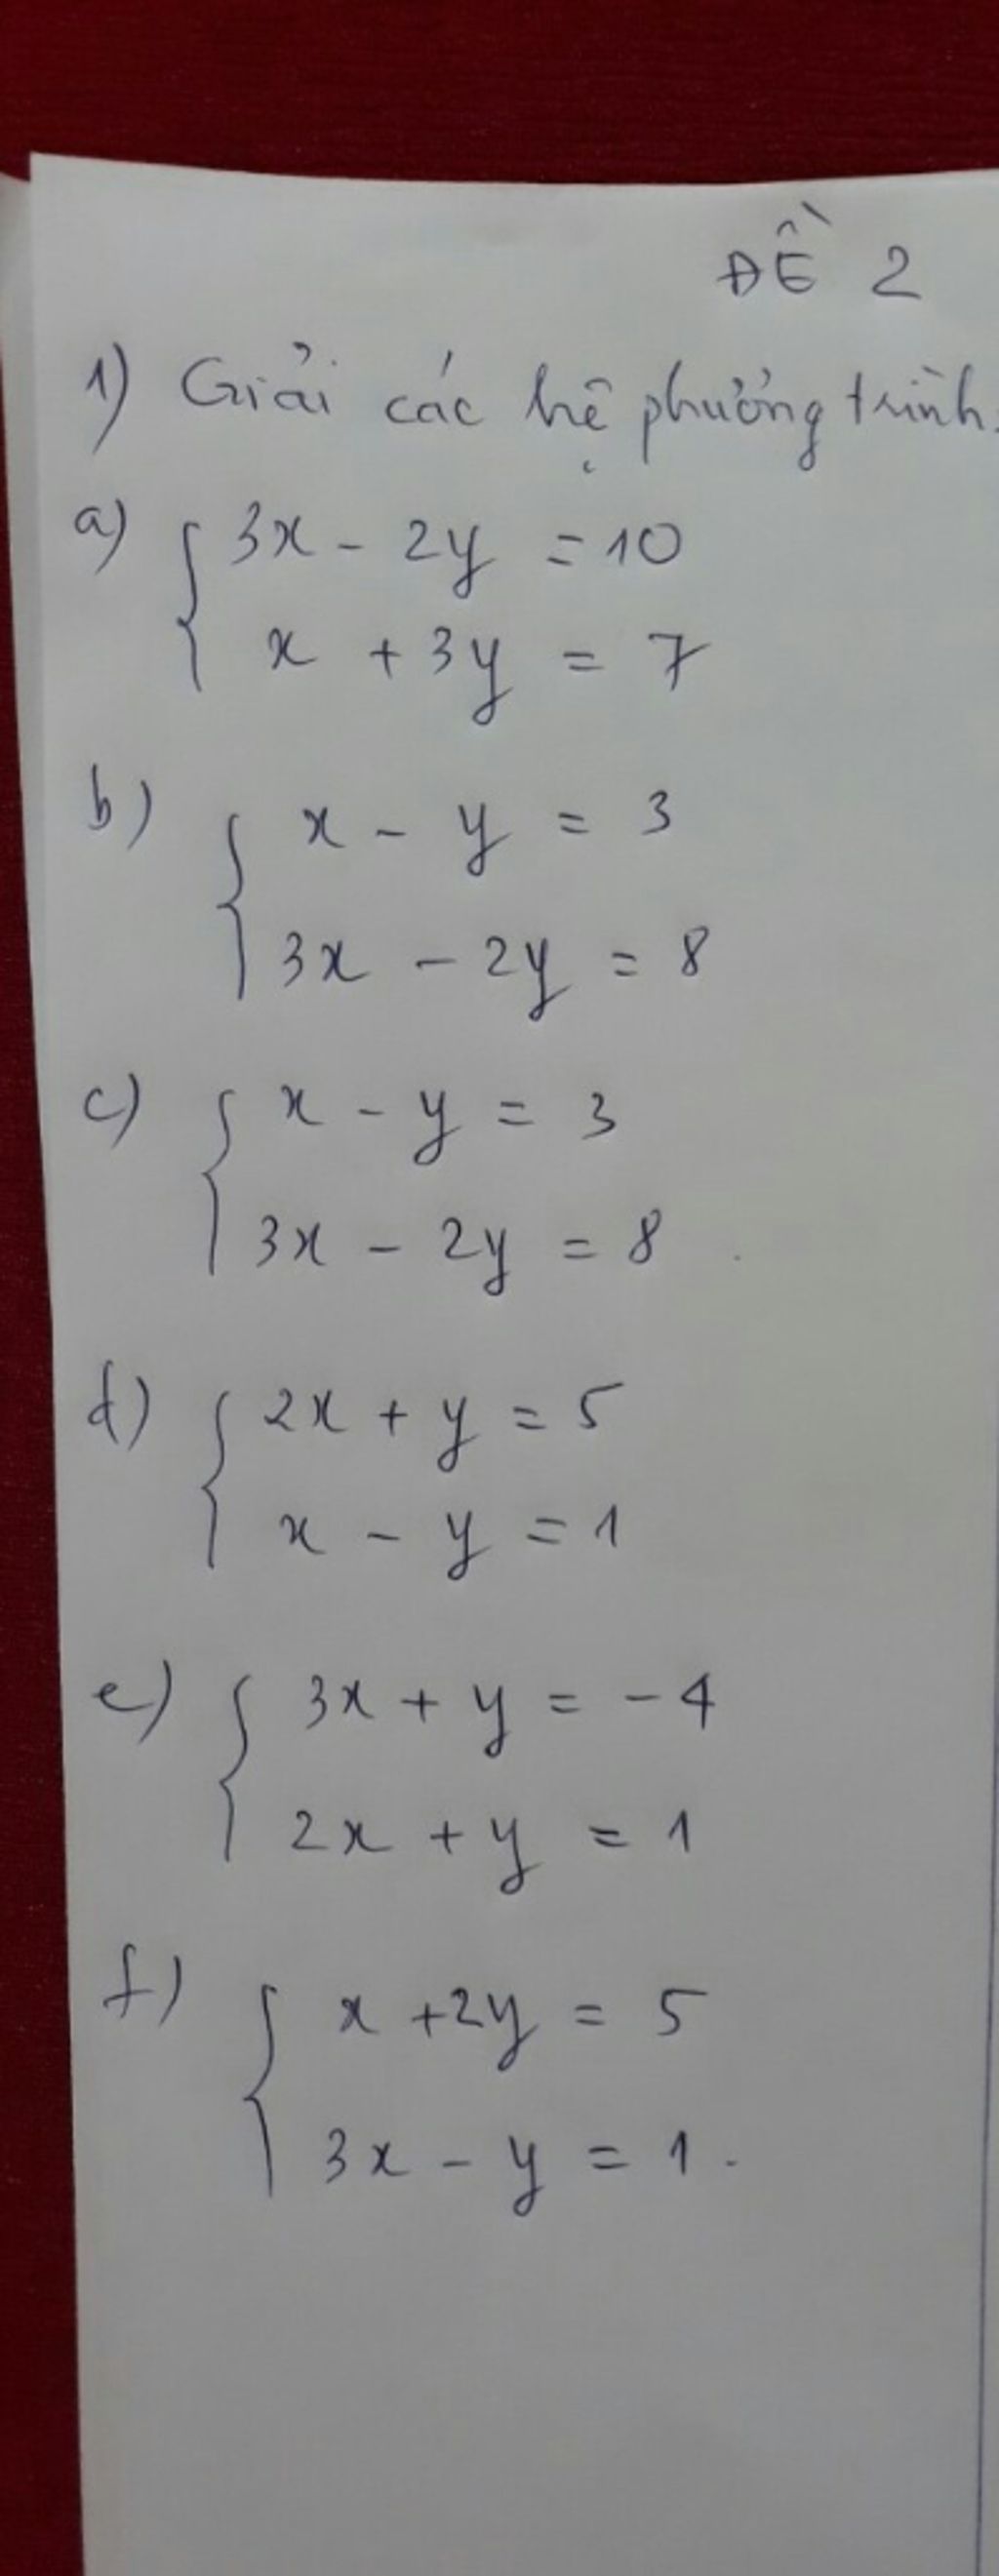 ĐỀ 2
1) Giải các hệ phương trình.
a) { 3x - 2y = 10
x + 3y = 7
b) { x - y = 3
3x - 2y = 8
c) { x - y = 3
3x - 2y = 8
d) { 2x + y = 5
x - y = 1
e) { 3x + y = -4
2x + y = 1
f) { x + 2y = 5
3x - y = 1.